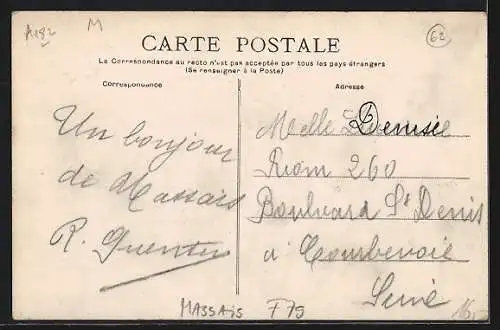 A282 M 62
CARTE POSTALE
La Correspondance au recto n'est pas acceptée par tous les pays étrangers
(Se renseigner à la Poste)
Correspondance
Adresse
Un bonjour
de Massais
R. Guenter
Melle Denise
Riom 260
Boulvard St Denis
à Courbevoie
Seine
MASSAIS F79